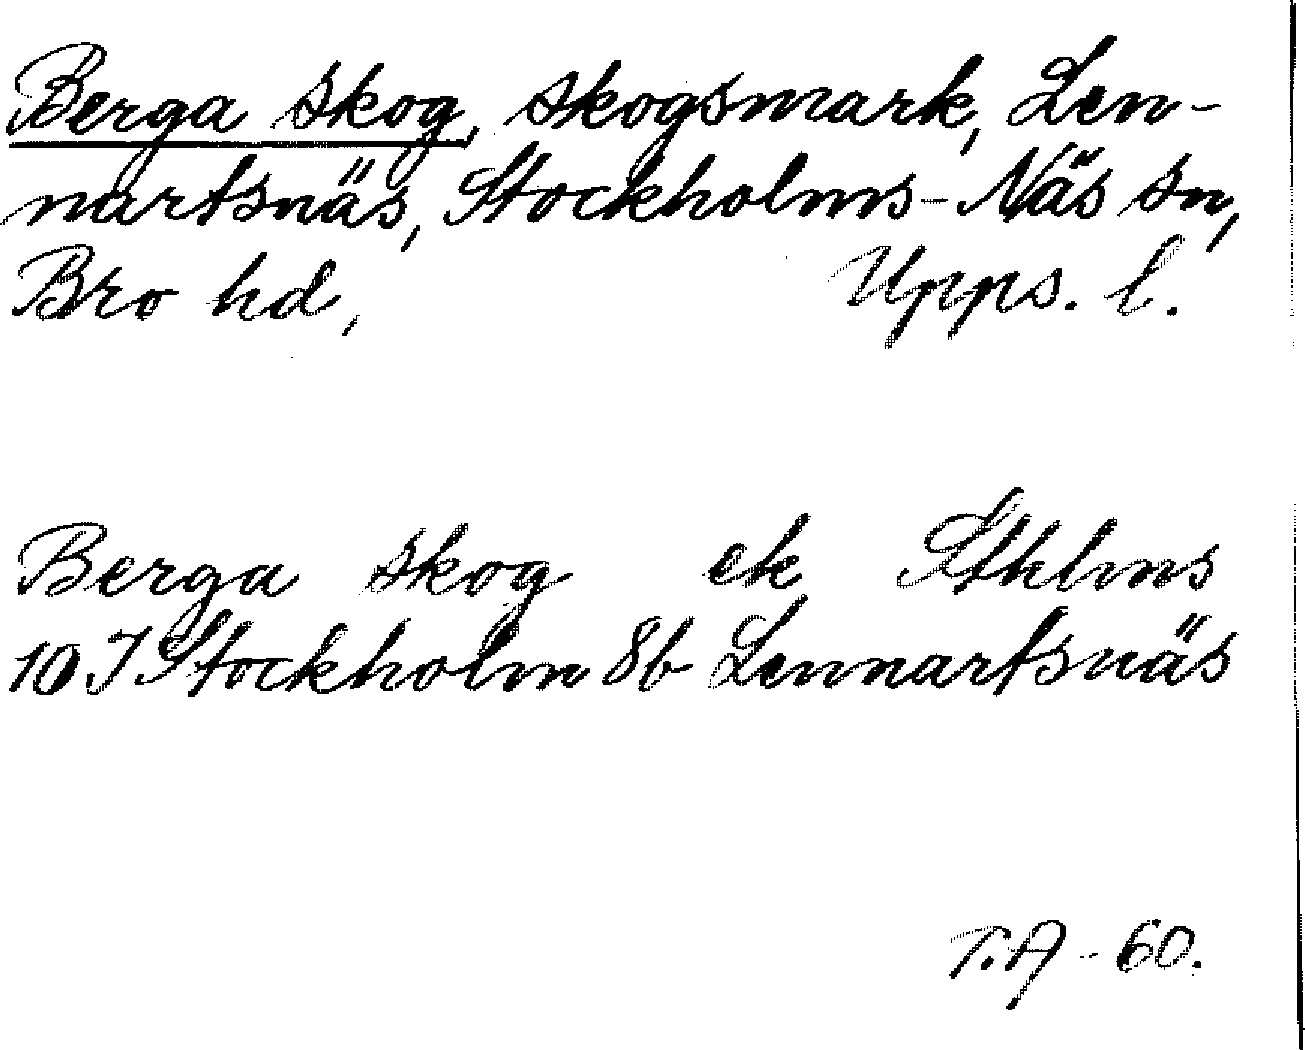 Berga skog, skogsmark, Len-
nartsnäs, Stockholms-Näs sn,
Bro hd, Upps. l.
Berga skog ek Sthlms
10 I Stockholm 8b Lennartsnäs
T.A - 60.